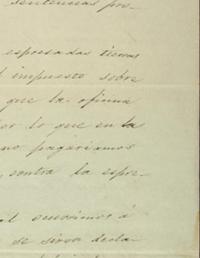 sentencias pro-
espresadas tierras
l impuesto sobre
que la oficina
or lo que en la
no pagáriamos
, contra la espre-
ocurrimos á
se sirva decla-